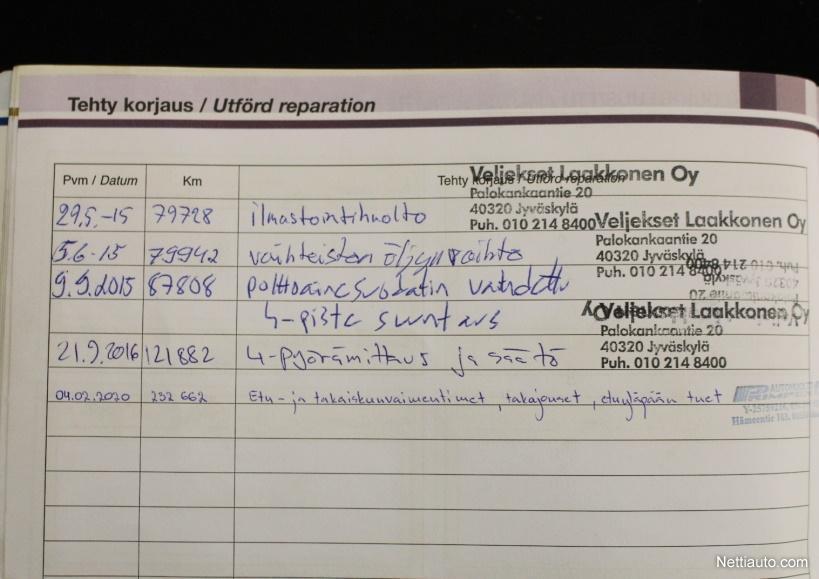 Tehty korjaus / Utförd reparation
Pvm / Datum Km Tehty korjaus / Utförd reparation
Veljekset Laakkonen Oy
Palokankaantie 20
40320 Jyväskylä
Puh. 010 214 8400
29.5.-15 79728 ilmastointihuolto
Veljekset Laakkonen Oy
Palokankaantie 20
40320 Jyväskylä
Puh. 010 214 8400
5.6-15 79942 vaihteiston öljynvaihto
9.9.2015 87808 polttoainesuodatin vaihdettu
4-piste suuntaus
Veljekset Laakkonen Oy
Palokankaantie 20
40320 Jyväskylä
Puh. 010 214 8400
21.9.2016 121882 4-pyörämittaus ja säätö
04.02.2020 232 662 Etu- ja takaiskunvaimentimet, takajouset, etuyläpään tuet
Nettiauto.com